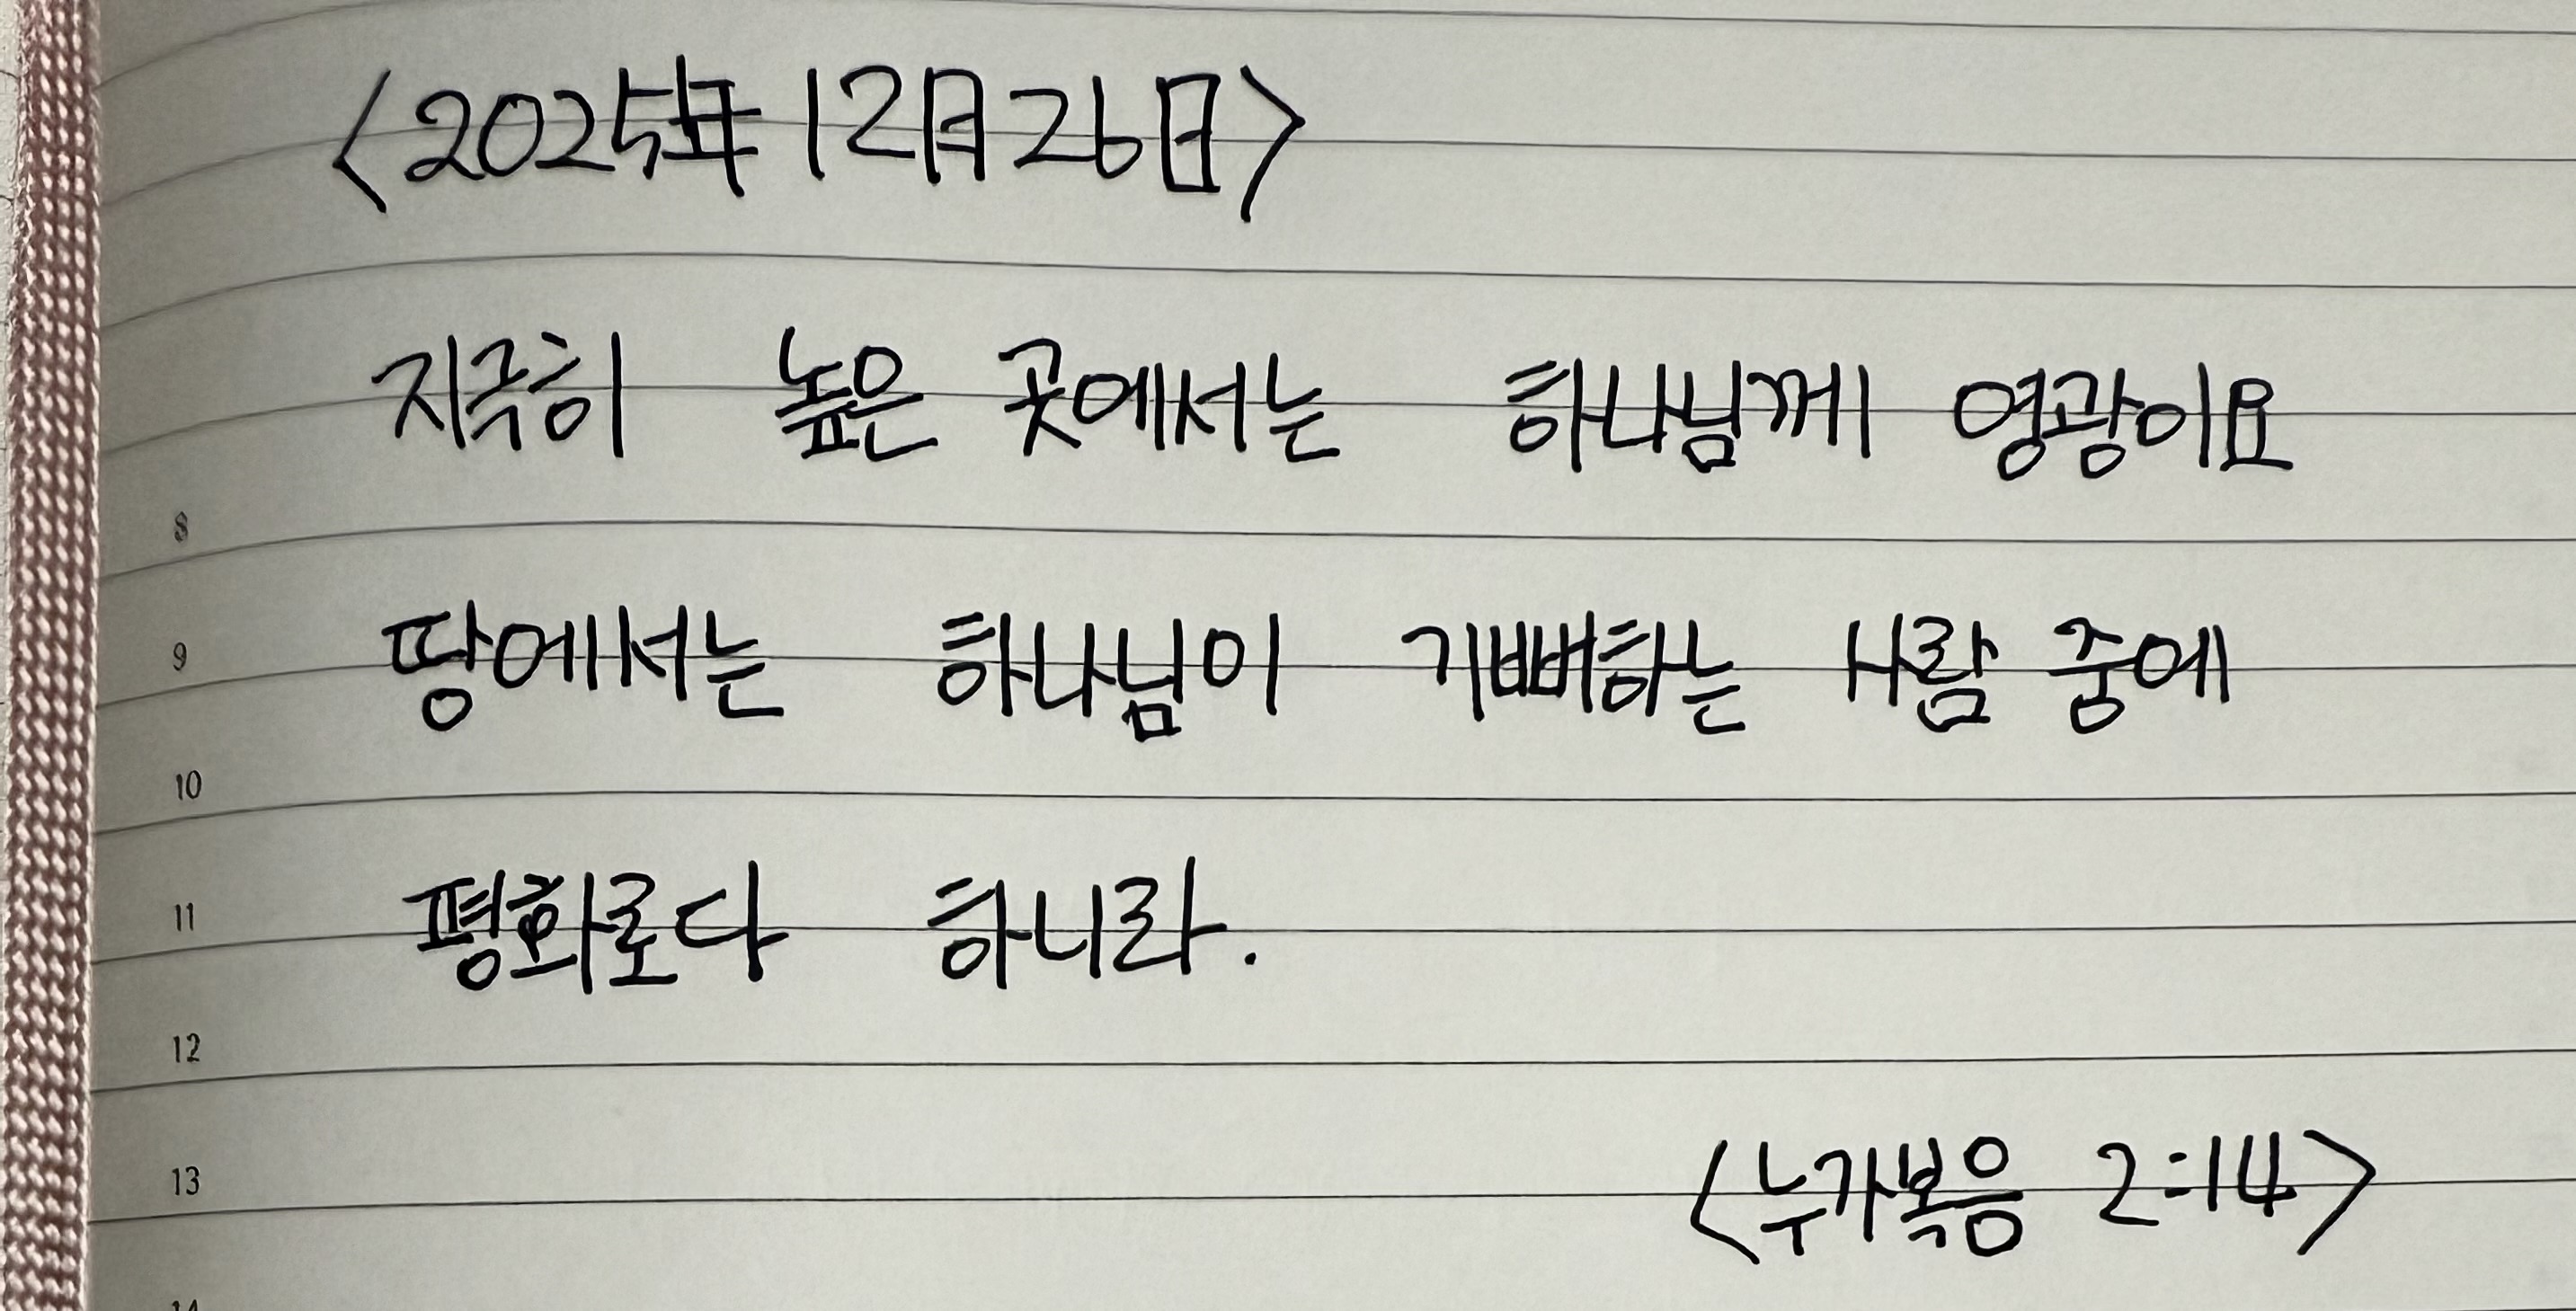 <2025年 12月 26日>
지극히 높은 곳에서는 하나님께 영광이요
8
땅에서는 하나님이 기뻐하는 사람 중에
9
10
평화로다 하니라.
11
12
<누가복음 2:14>
13
14